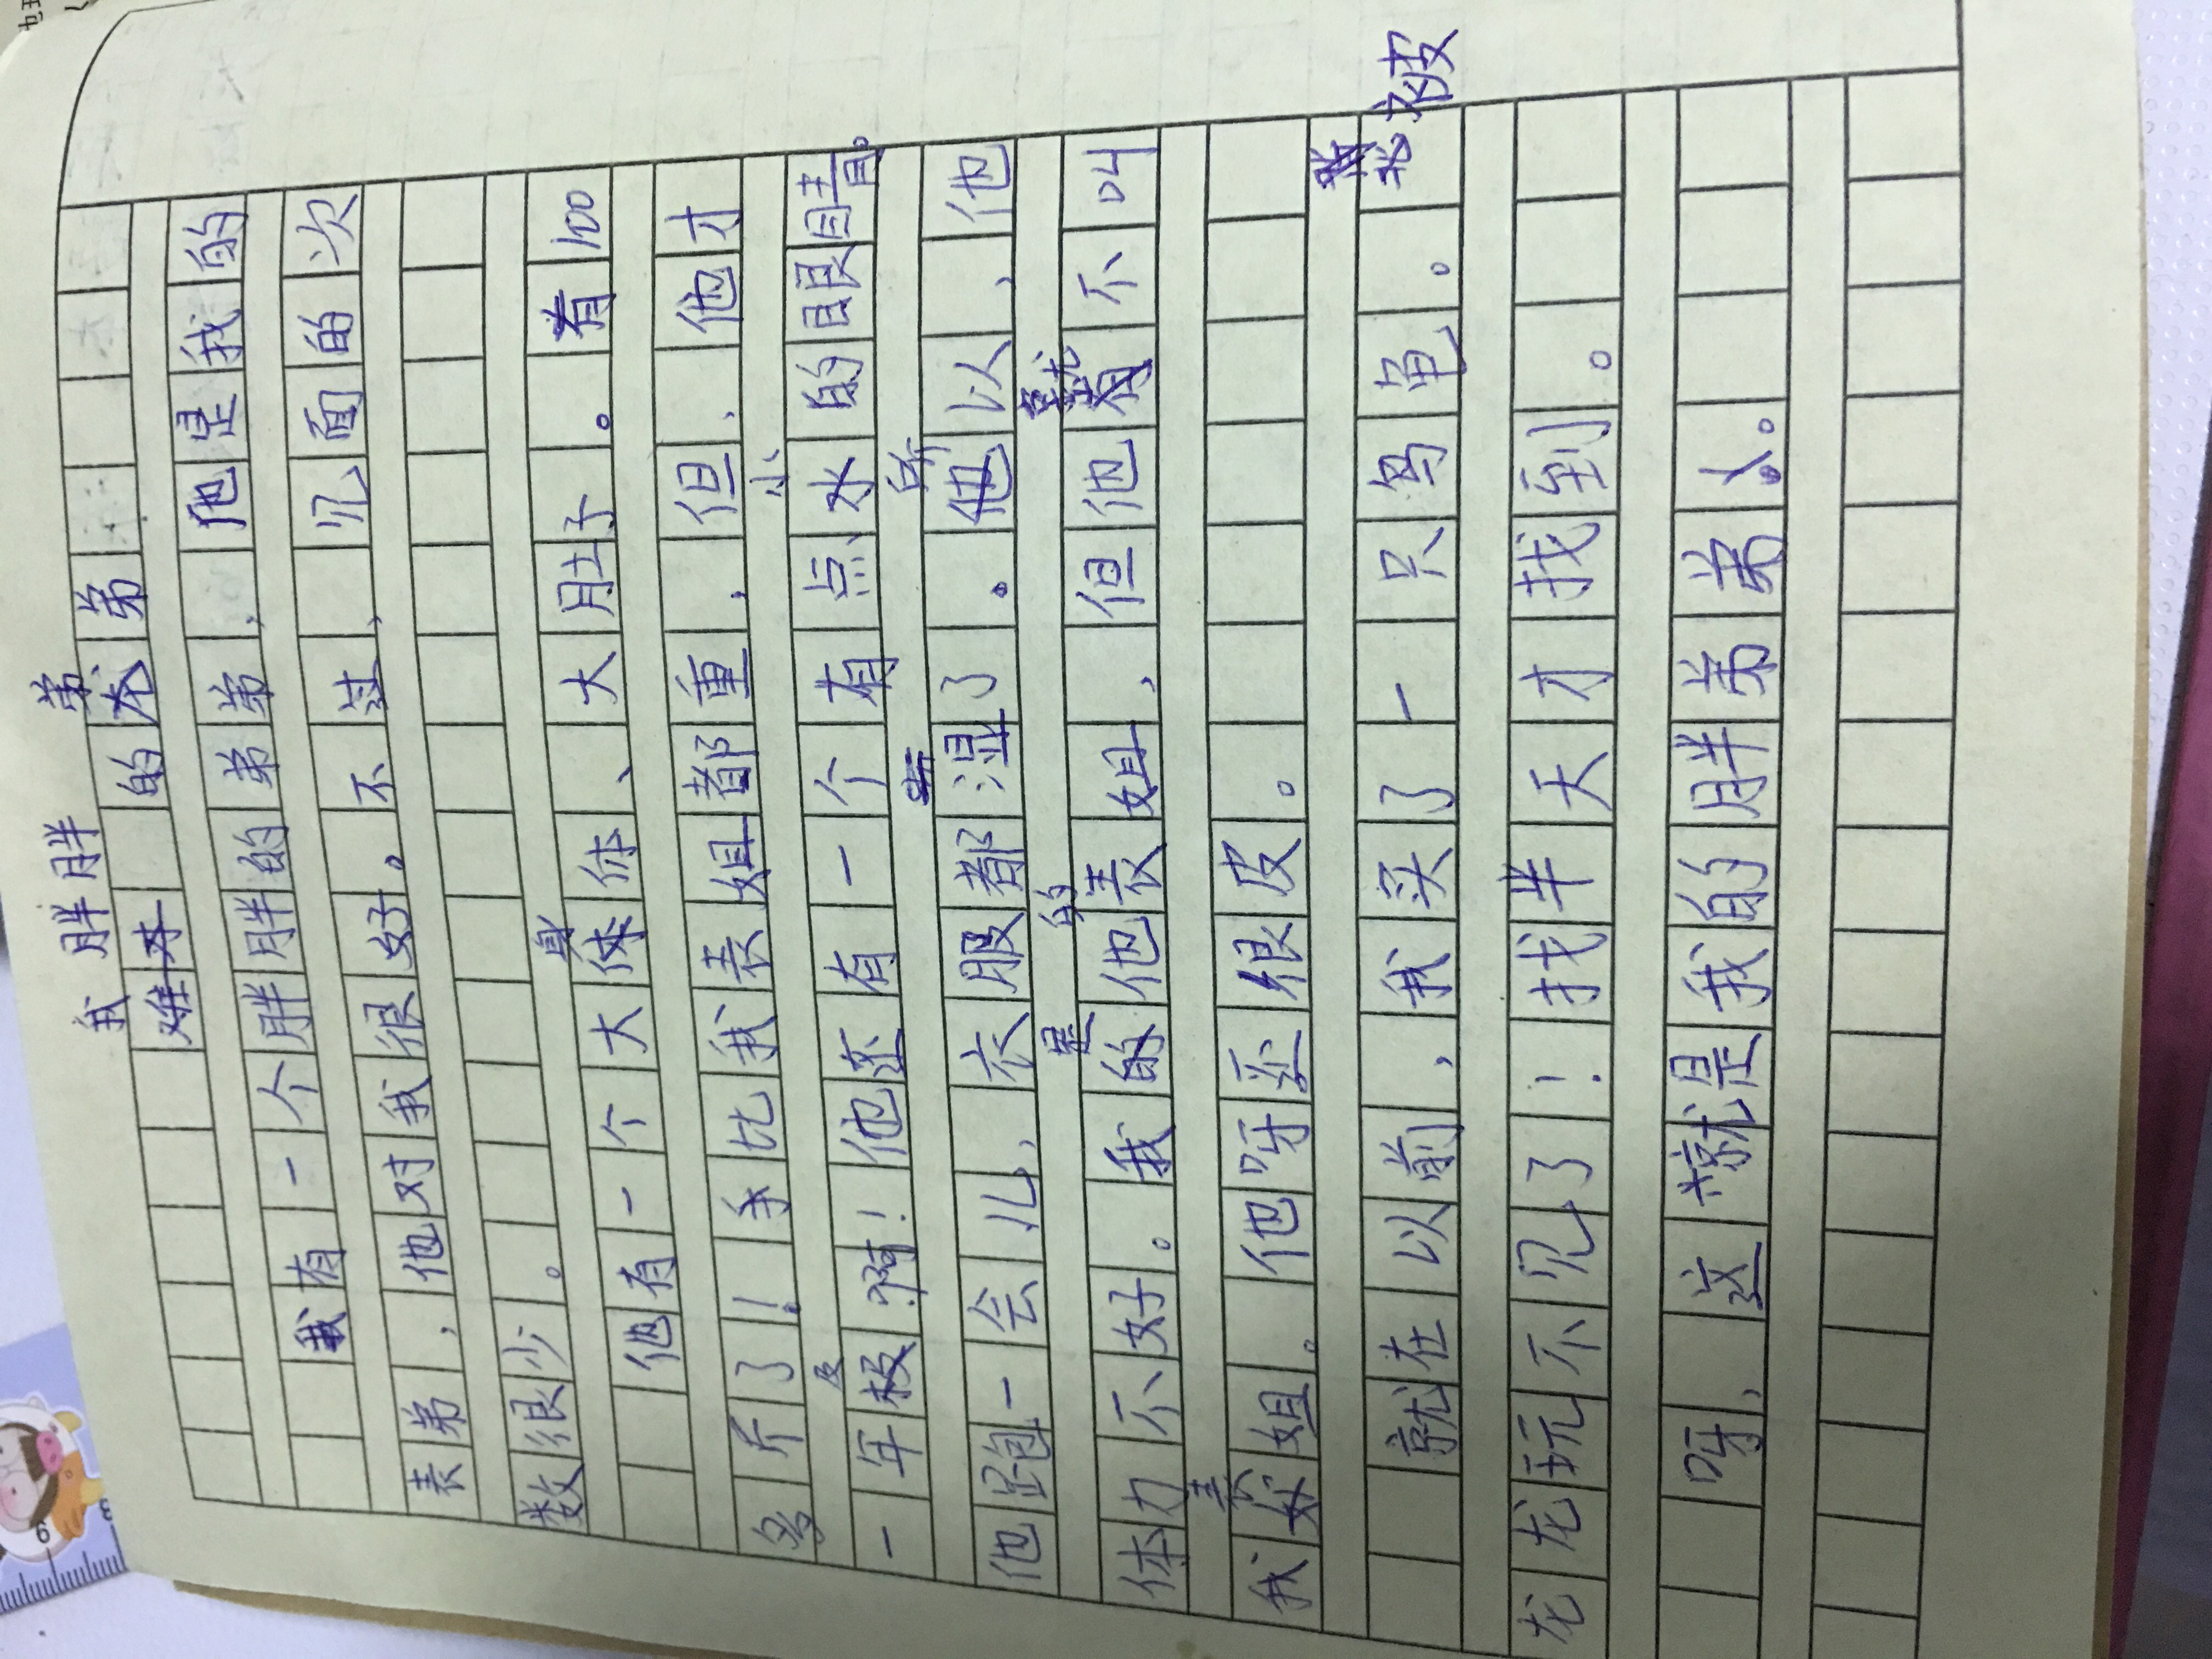 我胖胖的弟弟
我有一个胖胖的弟弟，他是我的
表弟，他对我很好。不过，见面的次
数很少。
他有一个大身体你、大肚子。有100
多斤了！手比我表姐都重，但，他才
一年级啊！他还有一个有点小水的眼睛。
他跑一会儿，衣服都湿了。所以，他
体力不好。我是他的表姐，但他就不叫
我表姐。他呀还很皮。
就在以前，我买了一只乌龟。被
龙龙玩不见了！找半天才找到。
呀，这就是我的胖弟弟。